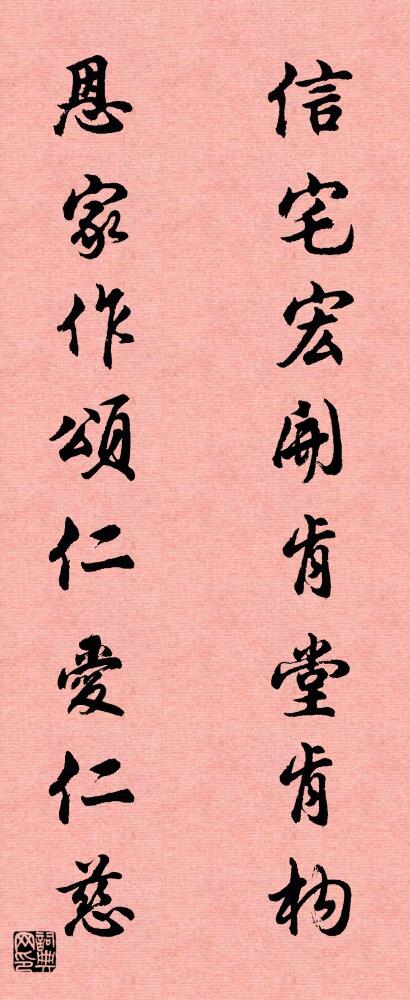 信宅宏開肯堂肯构
恩家作頌仁愛仁慈
詞典網印